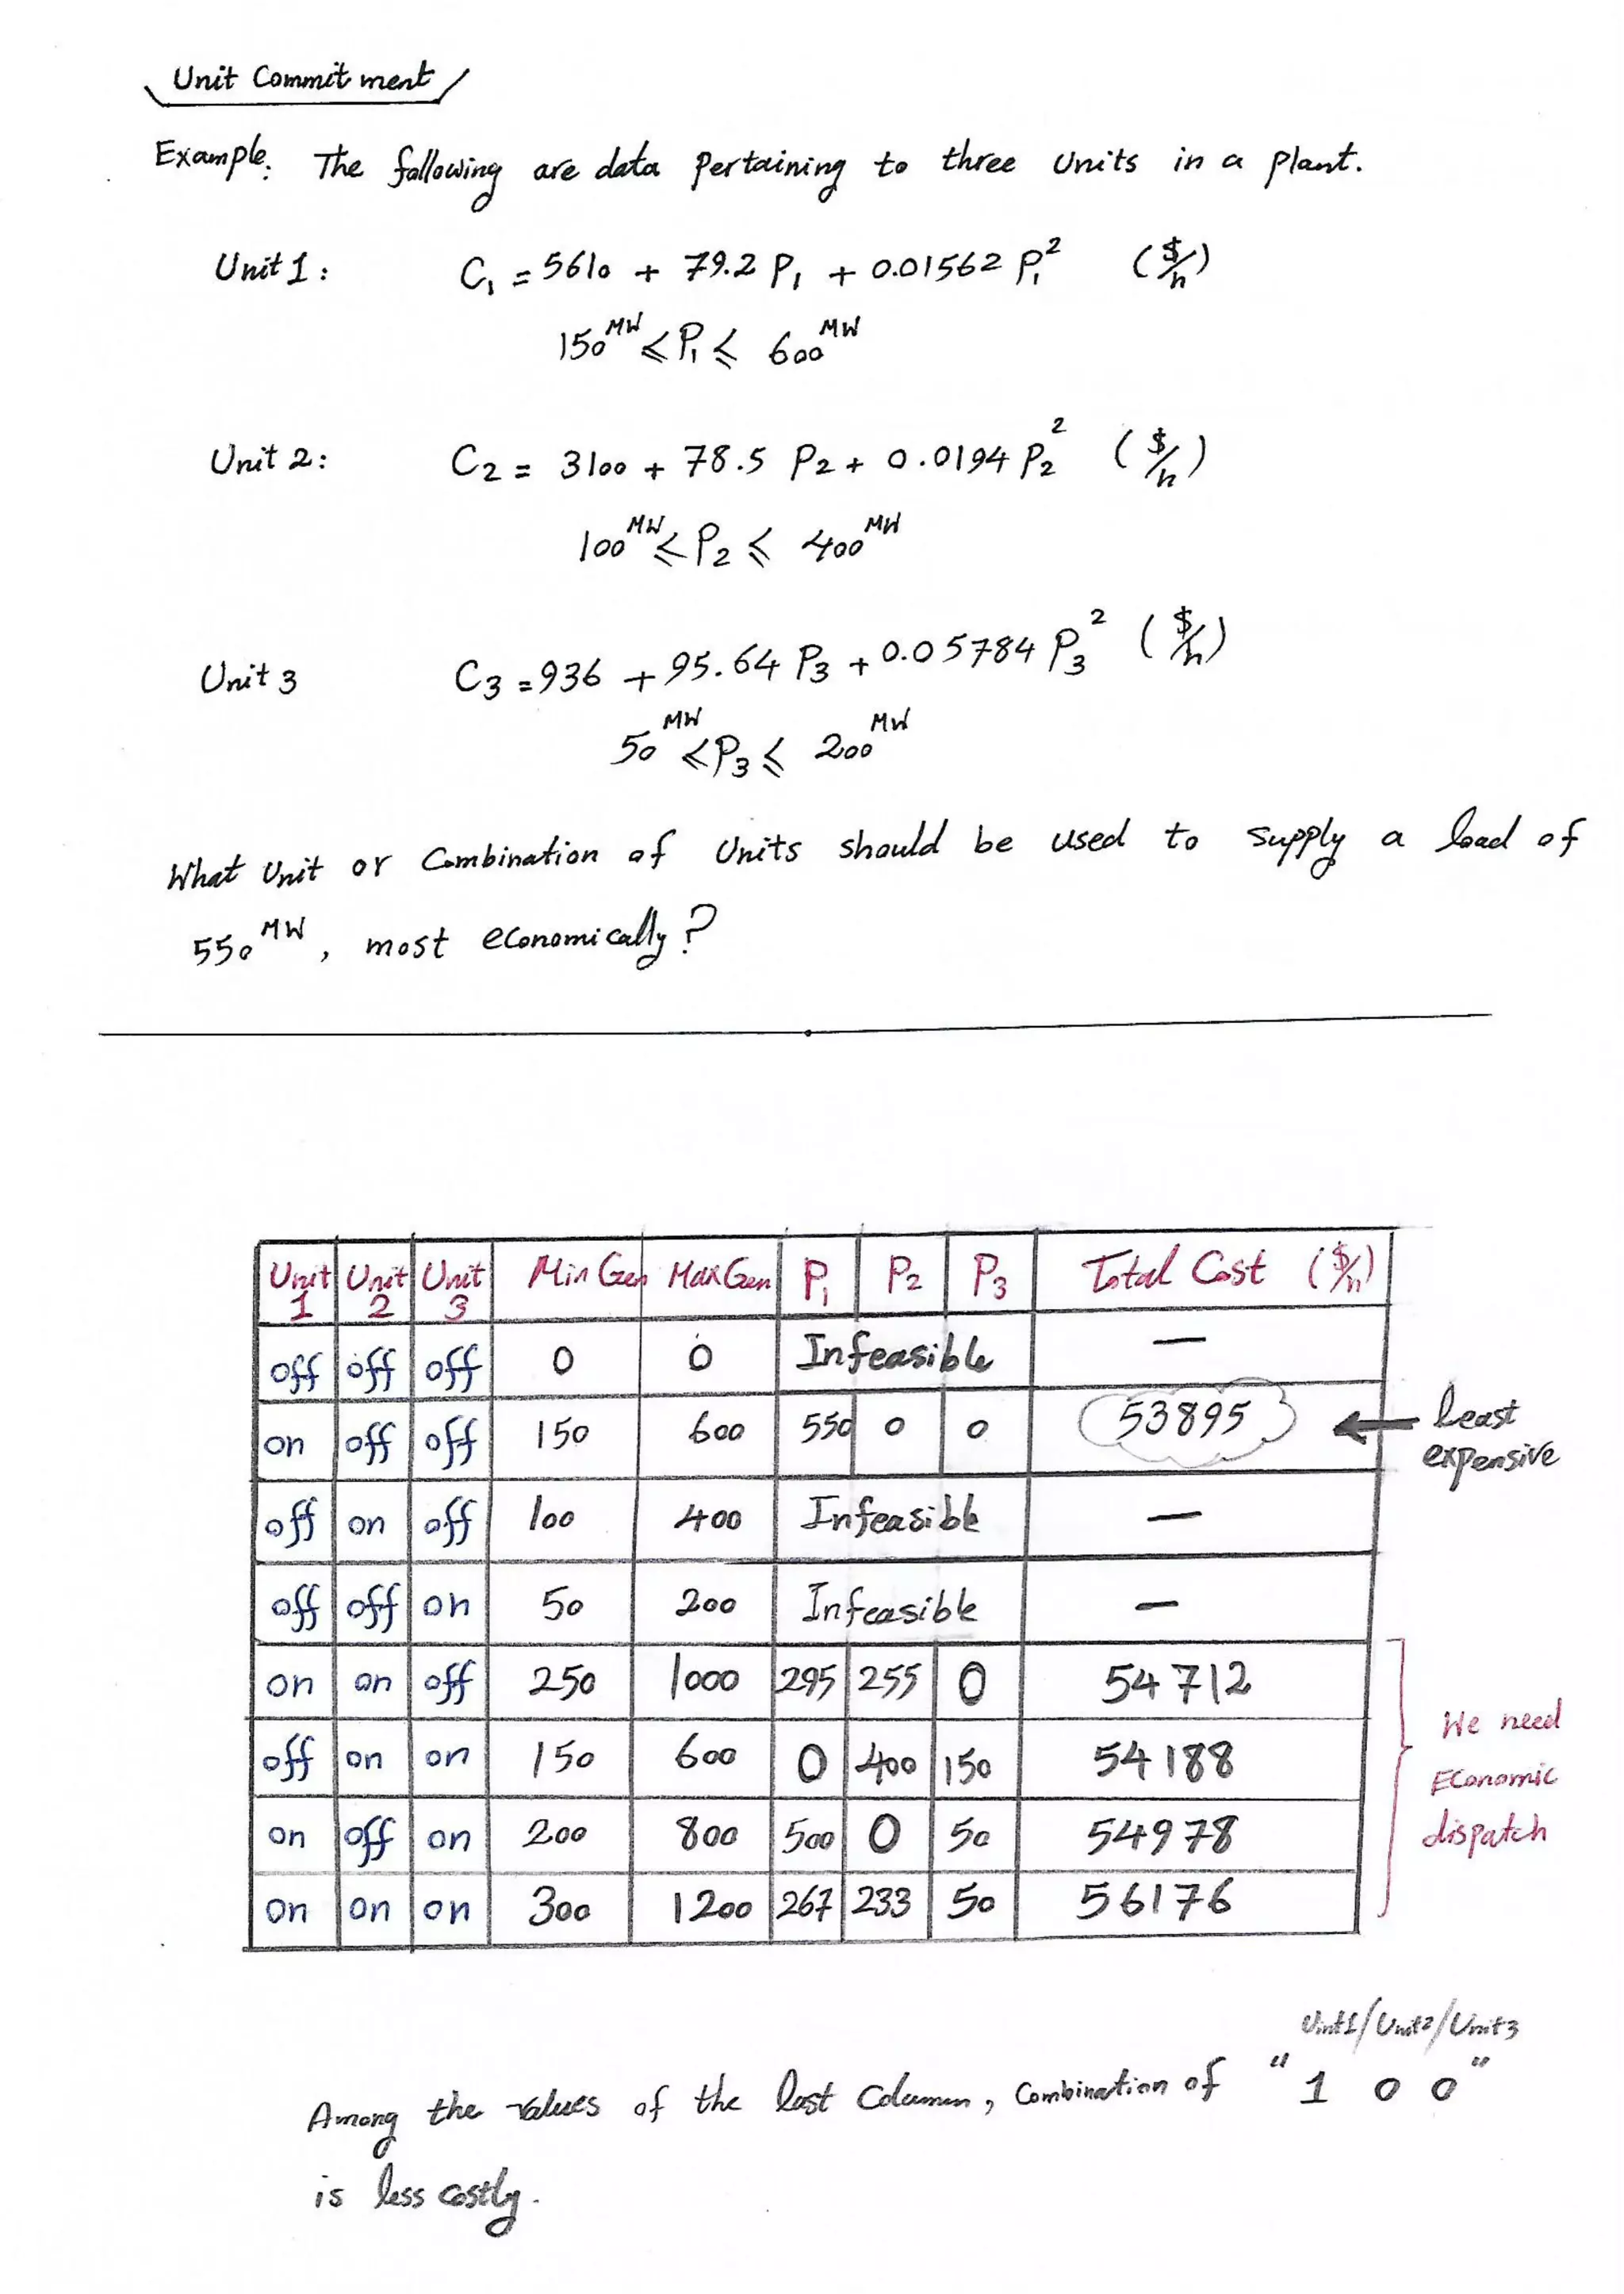 Unit Commitment
Example: The following are data pertaining to three Units in a plant.
Unit 1: C₁ = 5610 + 79.2 P₁ + 0.01562 P₁² ($/h)
150 MW ≤ P₁ ≤ 600 MW
Unit 2: C₂ = 3100 + 78.5 P₂ + 0.0194 P₂² ($/h)
100 MW ≤ P₂ ≤ 400 MW
Unit 3 C₃ = 936 + 95.64 P₃ + 0.05784 P₃² ($/h)
50 MW ≤ P₃ ≤ 200 MW
What Unit or Combination of Units should be used to supply a load of
550 MW, most economically?
Unit 1 Unit 2 Unit 3 Min Gen Max Gen P₁ P₂ P₃ Total Cost ($/h)
off off off 0 0 Infeasible —
on off off 150 600 550 0 0 53895 ← least expensive
off on off 100 400 Infeasible —
off off on 50 200 Infeasible —
on on off 250 1000 295 255 0 54712
off on on 150 600 0 400 150 54188
on off on 200 800 500 0 50 54978
on on on 300 1200 267 233 50 56176
We need
Economic
dispatch
Unit1/Unit2/Unit3
Among the values of the last Column, Combination of "1 0 0"
is less costly.